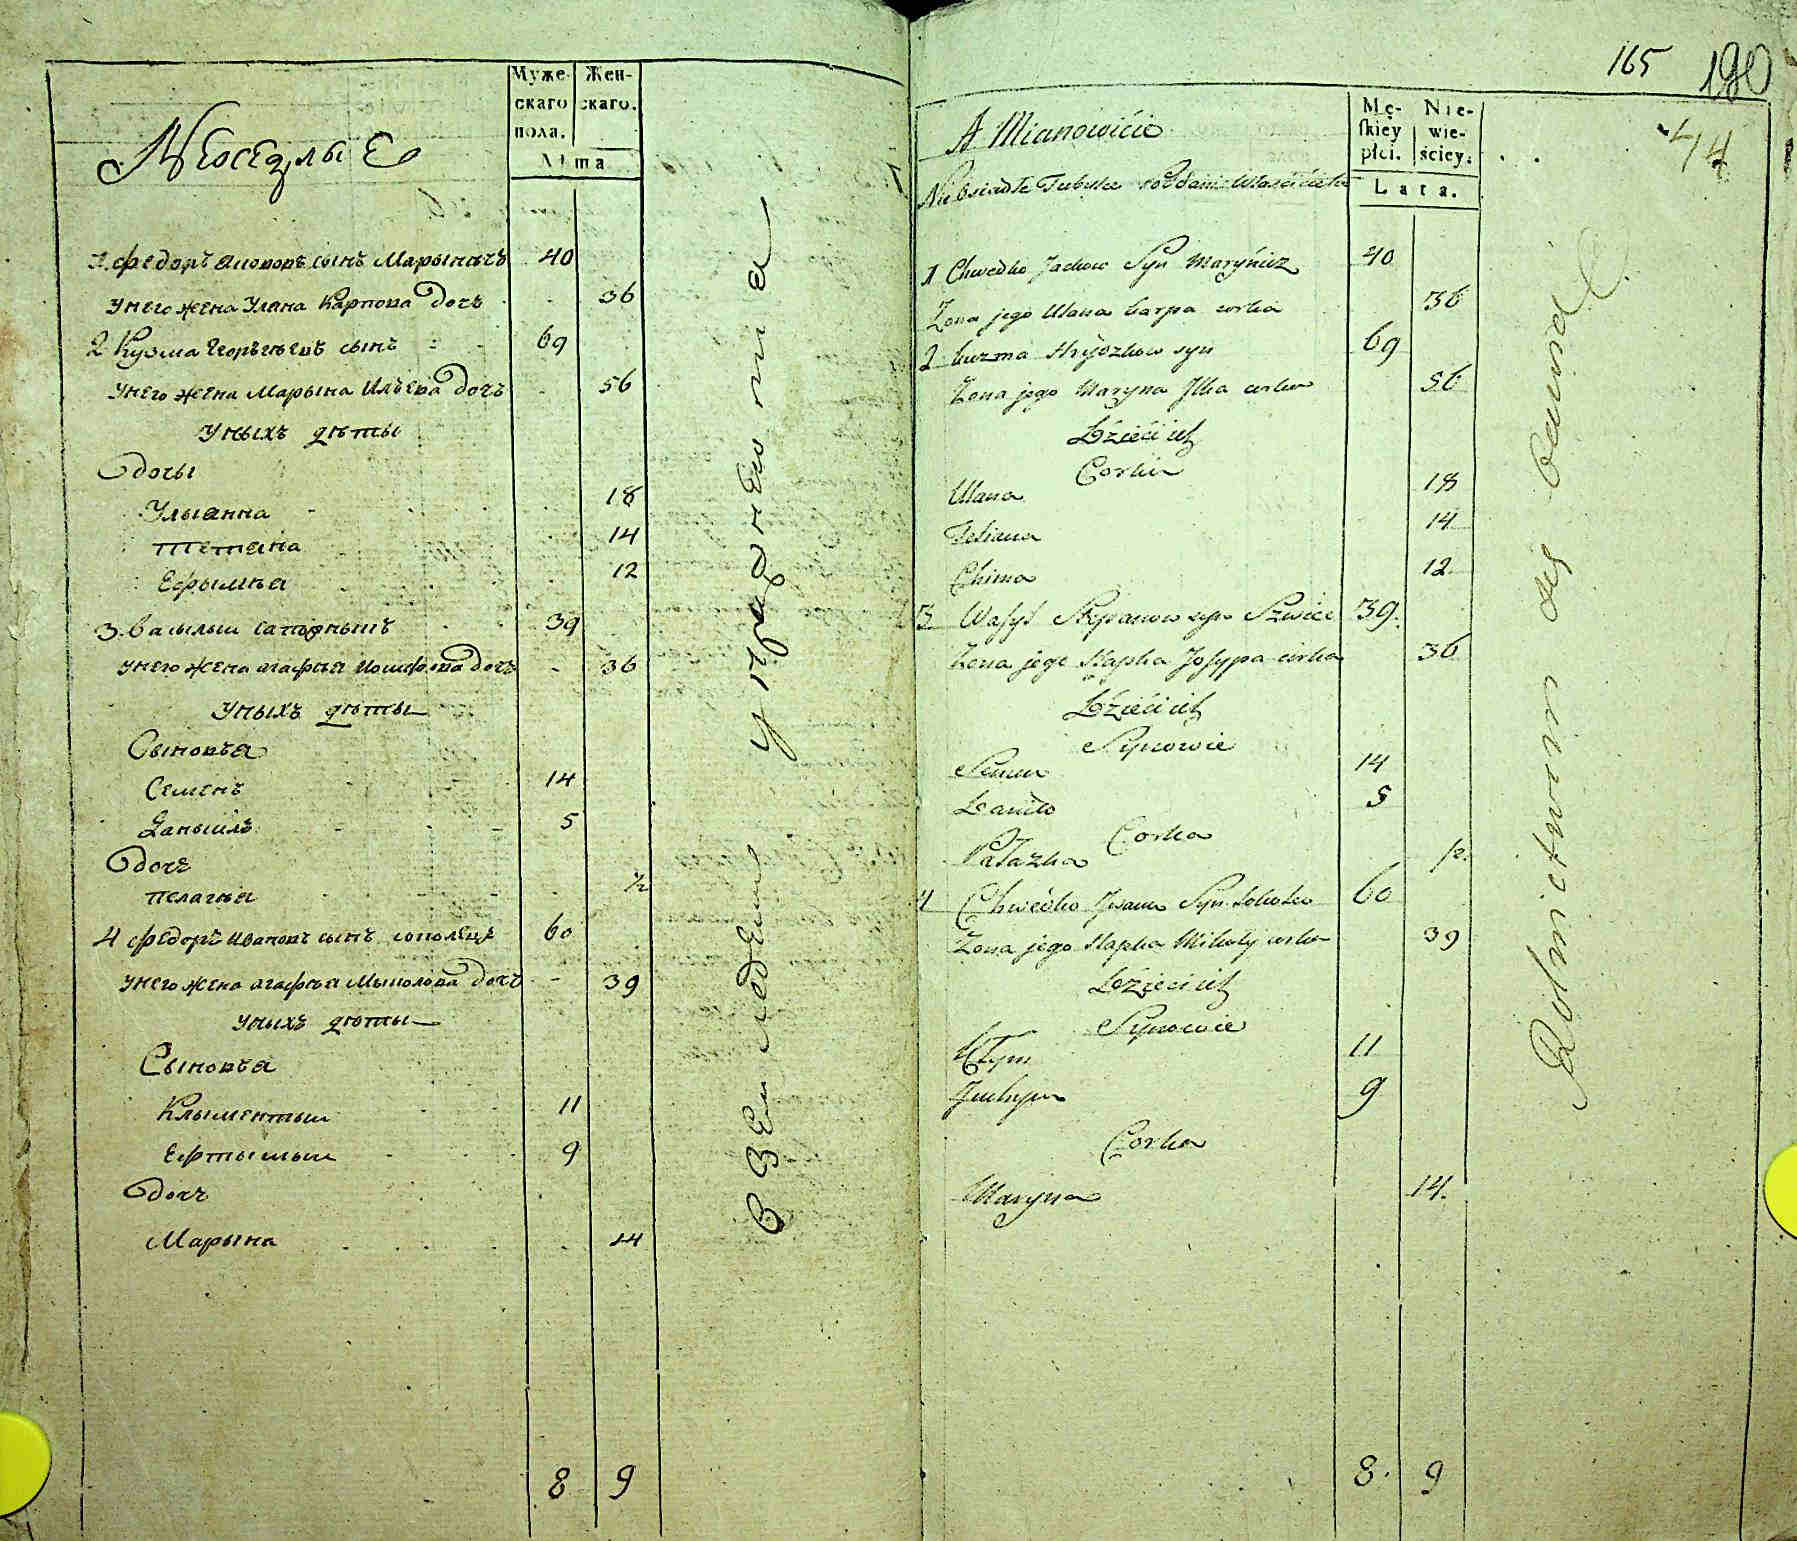 Муже-
скаго
пола.
Жен-
скаго.
Лѣта
Неоседлые
1 Федоръ Яковов сынъ Марынычъ 40
У него жена Улана Карпова дочь 36
2 Кузма Георгьевъ сынъ 69
У него жена Марына Ильева дочь 56
У ныхъ дѣты
дочы
Ульянна 18
Тетяна 14
Ефымья 12
3 Васылый 39
У него жена Агафья Иосифова дочь 36
У ныхъ дѣты
Сыновья
Семенъ 14
Даныилъ 5
дочь
Пелагия ½
4 Федоръ Ивановъ сынъ 60
У него жена Агафья дочь 39
У ныхъ дѣты
Сыновья
Клыментый 11
Ефтымый 9
дочь
Марына 14
8 9
УпражнѣюTся
в Земледѣліи
165
180
44
Mę-
skiey
płci.
Nie-
wie-
ściey.
Lata.
A Mianowicie
Nie Osiadłe Poddani Właściciela
1 Chwedko Jackow Syn Marynicz 40
Żona jego Ulana Karpa corka 36
2 Kuzma Hryczkow syn 69
Żona jego Maryna Jlka corka 56
Dzieci ich
Corki
Ulana 18
Tetiana 14
Chima 12
3 Wasyl Stepanow syn Szwiec 39
Żona jego Hapka Josyppa corka 36
Dzieci ich
Synowie
Semen 14
Daniło 5
Corka
Pałazka ½
4 Chwedko Jwana Syn 60
Żona jego Hapka Mikołaj corka 39
Dzieci ich
Synowie
Kłym 11
Juchym 9
Corka
Maryna 14
8 9
Rolnictwem się bawią